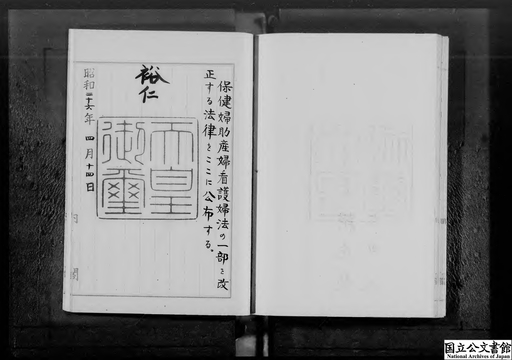 保健婦助産婦看護婦法の一部を改
正する法律をここに公布する。
裕仁
天皇
御璽
昭和二十六年 四月十四日
内閣
国立公文書館
National Archives of Japan